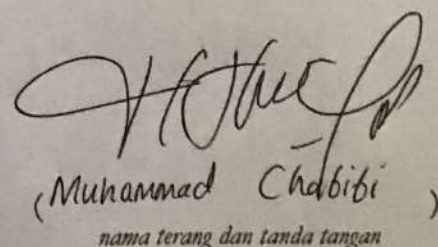 (Muhammad Chabibi)
nama terang dan tanda tangan